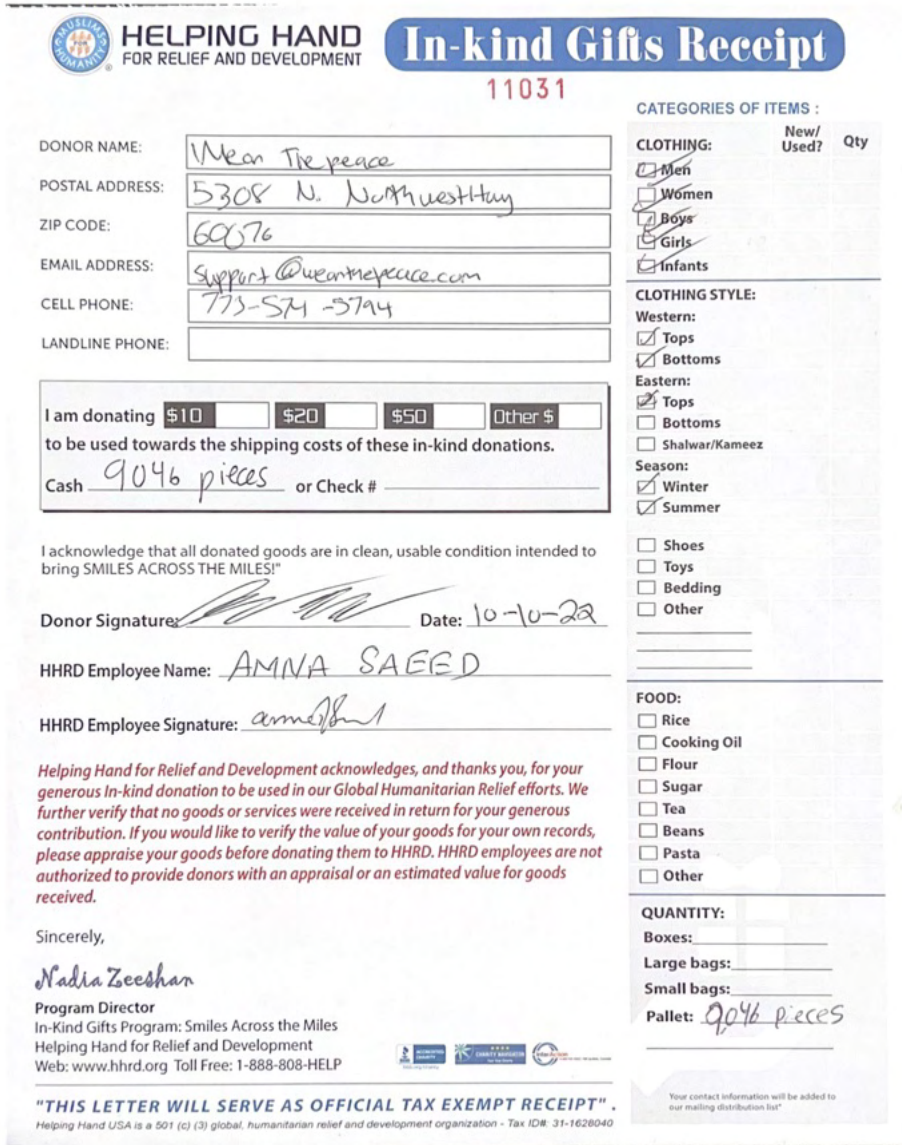 MUSLIMS FOR HUMANITY
HELPING HAND
FOR RELIEF AND DEVELOPMENT
In-kind Gifts Receipt
11031
DONOR NAME: Wear The peace
POSTAL ADDRESS: 5308 N. Northwest Hwy
ZIP CODE: 60076
EMAIL ADDRESS: support@wearthepeace.com
CELL PHONE: 773-571-5794
LANDLINE PHONE:
I am donating $10 $20 $50 Other $
to be used towards the shipping costs of these in-kind donations.
Cash 9046 pieces or Check #
I acknowledge that all donated goods are in clean, usable condition intended to
bring SMILES ACROSS THE MILES!"
Donor Signature: Date: 10-10-22
HHRD Employee Name: AMNA SAEED
HHRD Employee Signature:
Helping Hand for Relief and Development acknowledges, and thanks you, for your
generous In-kind donation to be used in our Global Humanitarian Relief efforts. We
further verify that no goods or services were received in return for your generous
contribution. If you would like to verify the value of your goods for your own records,
please appraise your goods before donating them to HHRD. HHRD employees are not
authorized to provide donors with an appraisal or an estimated value for goods
received.
Sincerely,
Nadia Zeeshan
Program Director
In-Kind Gifts Program: Smiles Across the Miles
Helping Hand for Relief and Development
Web: www.hhrd.org Toll Free: 1-888-808-HELP
ACCREDITED CHARITY
CHARITY NAVIGATOR
"THIS LETTER WILL SERVE AS OFFICIAL TAX EXEMPT RECEIPT" .
Helping Hand USA is a 501 (c) (3) global, humanitarian relief and development organization - Tax ID#: 31-1628040
CATEGORIES OF ITEMS :
CLOTHING: New/ Used? Qty
Men
Women
Boys
Girls
Infants
CLOTHING STYLE:
Western:
Tops
Bottoms
Eastern:
Tops
Bottoms
Shalwar/Kameez
Season:
Winter
Summer
Shoes
Toys
Bedding
Other
FOOD:
Rice
Cooking Oil
Flour
Sugar
Tea
Beans
Pasta
Other
QUANTITY:
Boxes:
Large bags:
Small bags:
Pallet: 9046 pieces
Your contact information will be added to
our mailing distribution list"